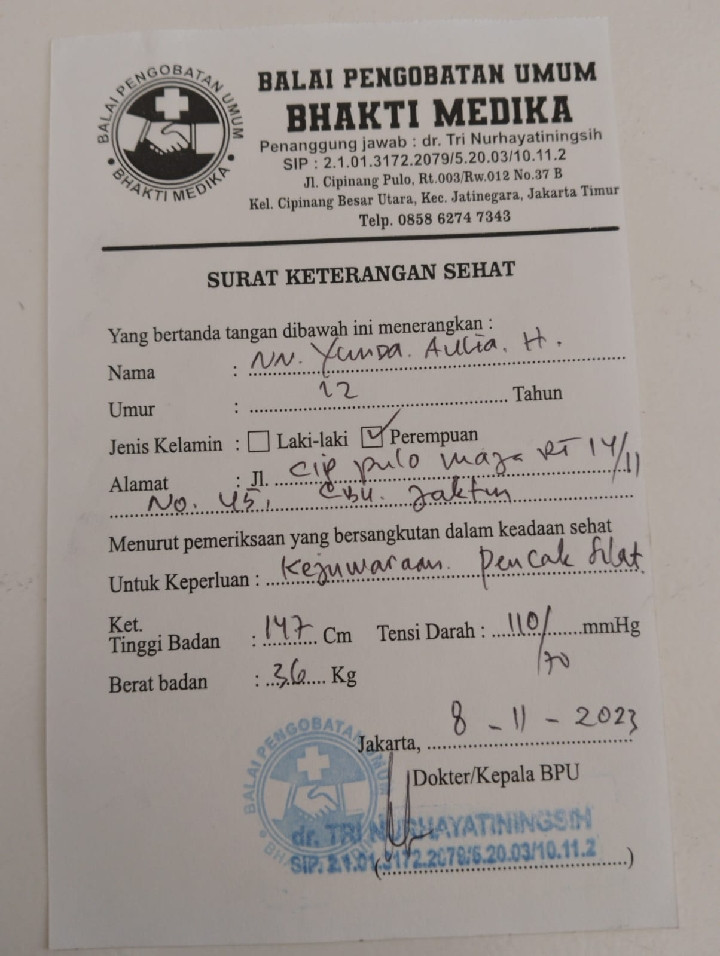 BALAI PENGOBATAN UMUM
BHAKTI MEDIKA
BALAI PENGOBATAN UMUM
BHAKTI MEDIKA
Penanggung jawab : dr. Tri Nurhayatiningsih
SIP : 2.1.01.3172.2079/5.20.03/10.11.2
Jl. Cipinang Pulo, Rt.003/Rw.012 No.37 B
Kel. Cipinang Besar Utara, Kec. Jatinegara, Jakarta Timur
Telp. 0858 6274 7343
SURAT KETERANGAN SEHAT
Yang bertanda tangan dibawah ini menerangkan :
Nama : NN. Yunda. Aulia. H.
Umur : 12 Tahun
Jenis Kelamin : Laki-laki Perempuan
Alamat : Jl. Cip pulo maja RT 14/11
No. 45, CBU. Jaktim
Menurut pemeriksaan yang bersangkutan dalam keadaan sehat
Untuk Keperluan : Kejuwaraan. Pencak Silat
Ket.
Tinggi Badan : 147 Cm Tensi Darah : 110/70 mmHg
Berat badan : 36 Kg
Jakarta, 8 - 11 - 2023
Dokter/Kepala BPU
BALAI PENGOBATAN UMUM
dr. TRI NURHAYATININGSIH
SIP. 2.1.01.3172.2079/5.20.03/10.11.2
(..............................)